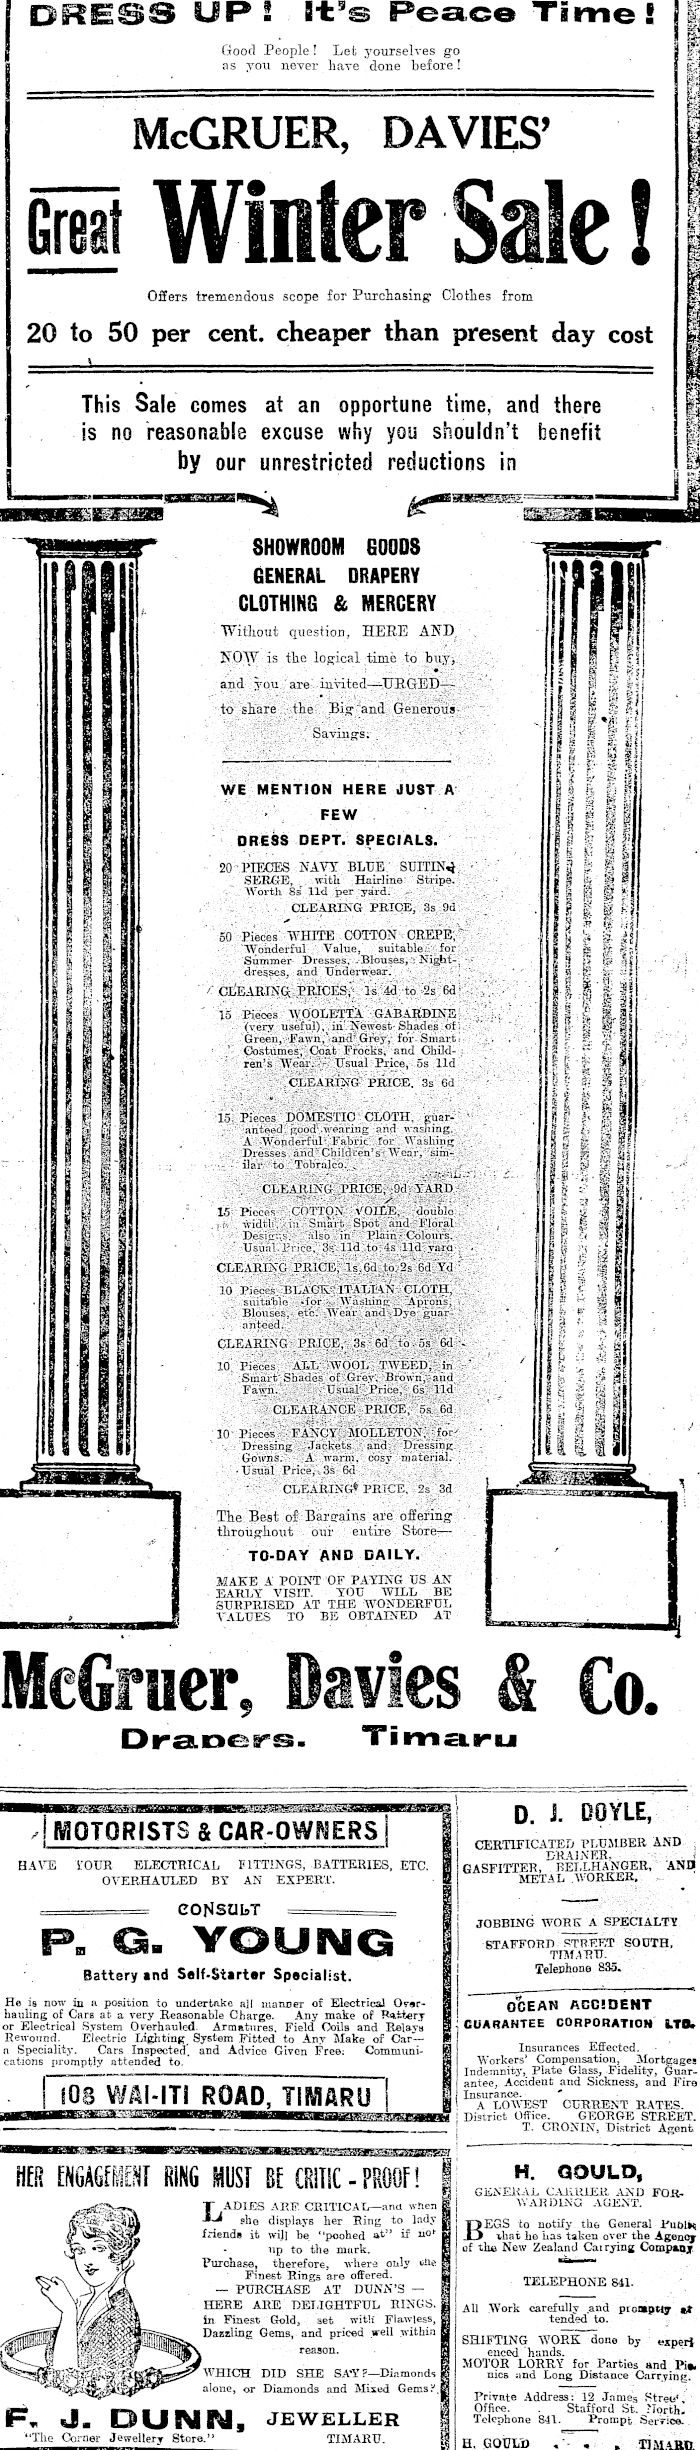 DRESS UP! It's Peace Time!
Good People! Let yourselves go
as you never have done before!
McGRUER, DAVIES'
Great Winter Sale!
Offers tremendous scope for Purchasing Clothes from
20 to 50 per cent. cheaper than present day cost
This Sale comes at an opportune time, and there
is no reasonable excuse why you shouldn't benefit
by our unrestricted reductions in
SHOWROOM GOODS
GENERAL DRAPERY
CLOTHING & MERCERY
Without question, HERE AND
NOW is the logical time to buy,
and you are invited—URGED—
to share the Big and Generous
Savings.
WE MENTION HERE JUST A
FEW
DRESS DEPT. SPECIALS.
20 PIECES NAVY BLUE SUITING
SERGE, with Hairline Stripe.
Worth 8s 11d per yard.
CLEARING PRICE, 3s 9d
50 Pieces WHITE COTTON CREPE,
Wonderful Value, suitable for
Summer Dresses, Blouses, Night-
dresses, and Underwear.
CLEARING PRICES, 1s 4d to 2s 6d
15 Pieces WOOLETTA GABARDINE
(very useful), in Newest Shades of
Green, Fawn, and Grey, for Smart
Costumes, Coat Frocks, and Child-
ren's Wear. Usual Price, 5s 11d
CLEARING PRICE, 3s 6d
15 Pieces DOMESTIC CLOTH, guar-
anteed good wearing and washing.
A Wonderful Fabric for Washing
Dresses and Children's Wear, sim-
ilar to Tobralco.
CLEARING PRICE, 9d YARD
15 Pieces COTTON VOILE, double
width, in Smart Spot and Floral
Designs, also in Plain Colours.
Usual Price, 3s 11d to 4s 11d yard
CLEARING PRICE, 1s 6d to 2s 6d Yd
10 Pieces BLACK ITALIAN CLOTH,
suitable for Washing Aprons,
Blouses, etc. Wear and Dye guar
anteed.
CLEARING PRICE, 3s 6d to 5s 6d
10 Pieces ALL WOOL TWEED, in
Smart Shades of Grey, Brown, and
Fawn. Usual Price, 6s 11d
CLEARANCE PRICE, 5s 6d
10 Pieces FANCY MOLLETON, for
Dressing Jackets and Dressing
Gowns. A warm, cosy material.
Usual Price, 3s 6d
CLEARING PRICE, 2s 3d
The Best of Bargains are offering
throughout our entire Store—
TO-DAY AND DAILY.
MAKE A POINT OF PAYING US AN
EARLY VISIT. YOU WILL BE
SURPRISED AT THE WONDERFUL
VALUES TO BE OBTAINED AT
McGruer, Davies & Co.
Drapers. Timaru
MOTORISTS & CAR-OWNERS
HAVE YOUR ELECTRICAL FITTINGS, BATTERIES, ETC.
OVERHAULED BY AN EXPERT.
CONSULT
P. G. YOUNG
Battery and Self-Starter Specialist.
He is now in a position to undertake all manner of Electrical Over-
hauling of Cars at a very Reasonable Charge. Any make of Battery
or Electrical System Overhauled. Armatures, Field Coils and Relays
Rewound. Electric Lighting System Fitted to Any Make of Car—
a Speciality. Cars Inspected, and Advice Given Free. Communi-
cations promptly attended to.
108 WAI-ITI ROAD, TIMARU
HER ENGAGEMENT RING MUST BE CRITIC-PROOF!
LADIES ARE CRITICAL—and when
she displays her Ring to lady
friends it will be "poohed at" if not
up to the mark.
Purchase, therefore, where only the
Finest Rings are offered.
— PURCHASE AT DUNN'S —
HERE ARE DELIGHTFUL RINGS,
in Finest Gold, set with Flawless,
Dazzling Gems, and priced well within
reason.
WHICH DID SHE SAY?—Diamonds
alone, or Diamonds and Mixed Gems?
F. J. DUNN, JEWELLER
"The Corner Jewellery Store." TIMARU.
D. J. DOYLE,
CERTIFICATED PLUMBER AND
DRAINER,
GASFITTER, BELLHANGER, AND
METAL WORKER,
JOBBING WORK A SPECIALTY
STAFFORD STREET SOUTH,
TIMARU.
Telephone 835.
OCEAN ACCIDENT
GUARANTEE CORPORATION LTD.
Insurances Effected.
Workers' Compensation, Mortgages
Indemnity, Plate Glass, Fidelity, Guar-
antee, Accident and Sickness, and Fire
Insurance.
A LOWEST CURRENT RATES.
District Office. GEORGE STREET.
T. CRONIN, District Agent
H. GOULD,
GENERAL CARRIER AND FOR-
WARDING AGENT.
BEGS to notify the General Public
that he has taken over the Agency
of the New Zealand Carrying Company
TELEPHONE 841.
All Work carefully and promptly at
tended to.
SHIFTING WORK done by experi
enced hands.
MOTOR LORRY for Parties and Pic-
nics and Long Distance Carrying.
Private Address: 12 James Street.
Office. Stafford St. North.
Telephone 841. Prompt Service.
H. GOULD TIMARU